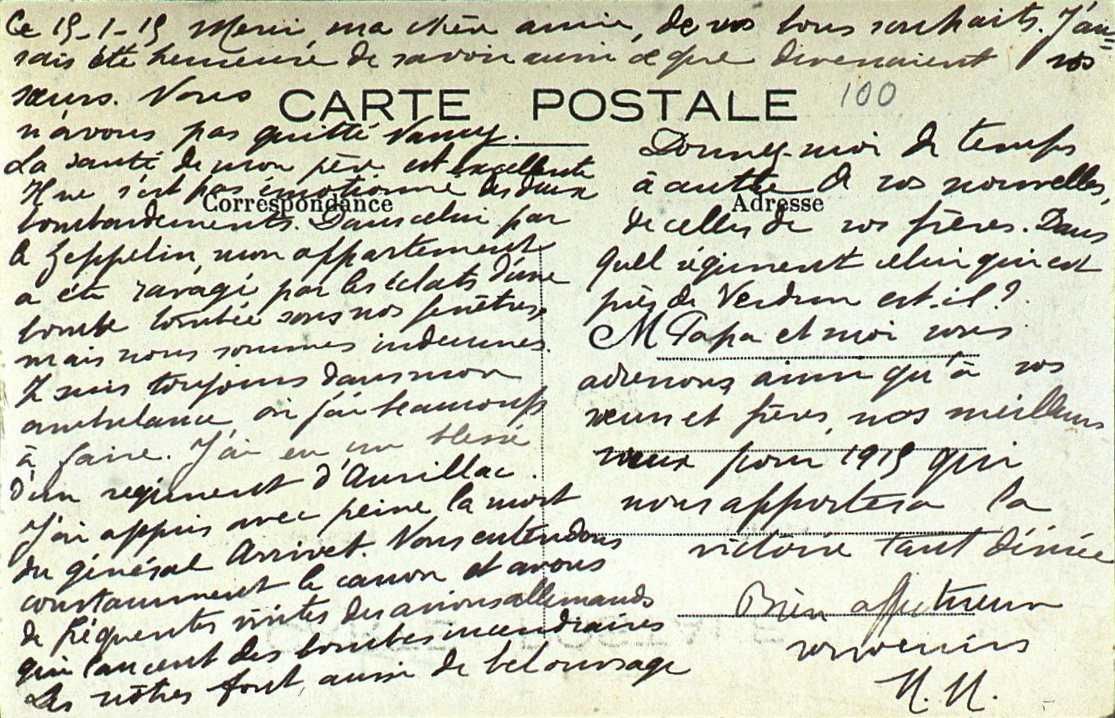 Ce 15-1-15 Merci ma chère amie, de vos bons souhaits. J'au=
rais été heureuse de savoir aussi ce que devenaient vos
sœurs. Nous
CARTE POSTALE 100
n'avons pas quitté Nancy.
La santé de mon père est excellente
Il ne s'est pas émotionné des deux
Correspondance
bombardements. Dans celui par
le Zeppelin, mon appartement
a été ravagé par les éclats d'une
bombe tombée sous nos fenêtres
mais nous sommes indemnes.
Je suis toujours dans mon
ambulance où j'ai beaucoup
à faire. J'ai eu un blessé
d'un régiment d'Aurillac.
J'ai appris avec peine la mort
du général Arrivet. Nous entendons
constamment le canon et avons
de fréquentes visites des avions allemands
qui lancent des bombes incendiaires
Les nôtres font aussi de bel ouvrage
Adresse
Donnez-moi de temps
à autre de vos nouvelles,
de celles de vos frères. Dans
quel régiment celui qui est
près de Verdun est-il?
M Papa et moi vous
adressons ainsi qu'à vos
sœurs et frères, nos meilleurs
vœux pour 1915 qui
nous apportera la
victoire tant désirée
Bien affectueux
souvenirs